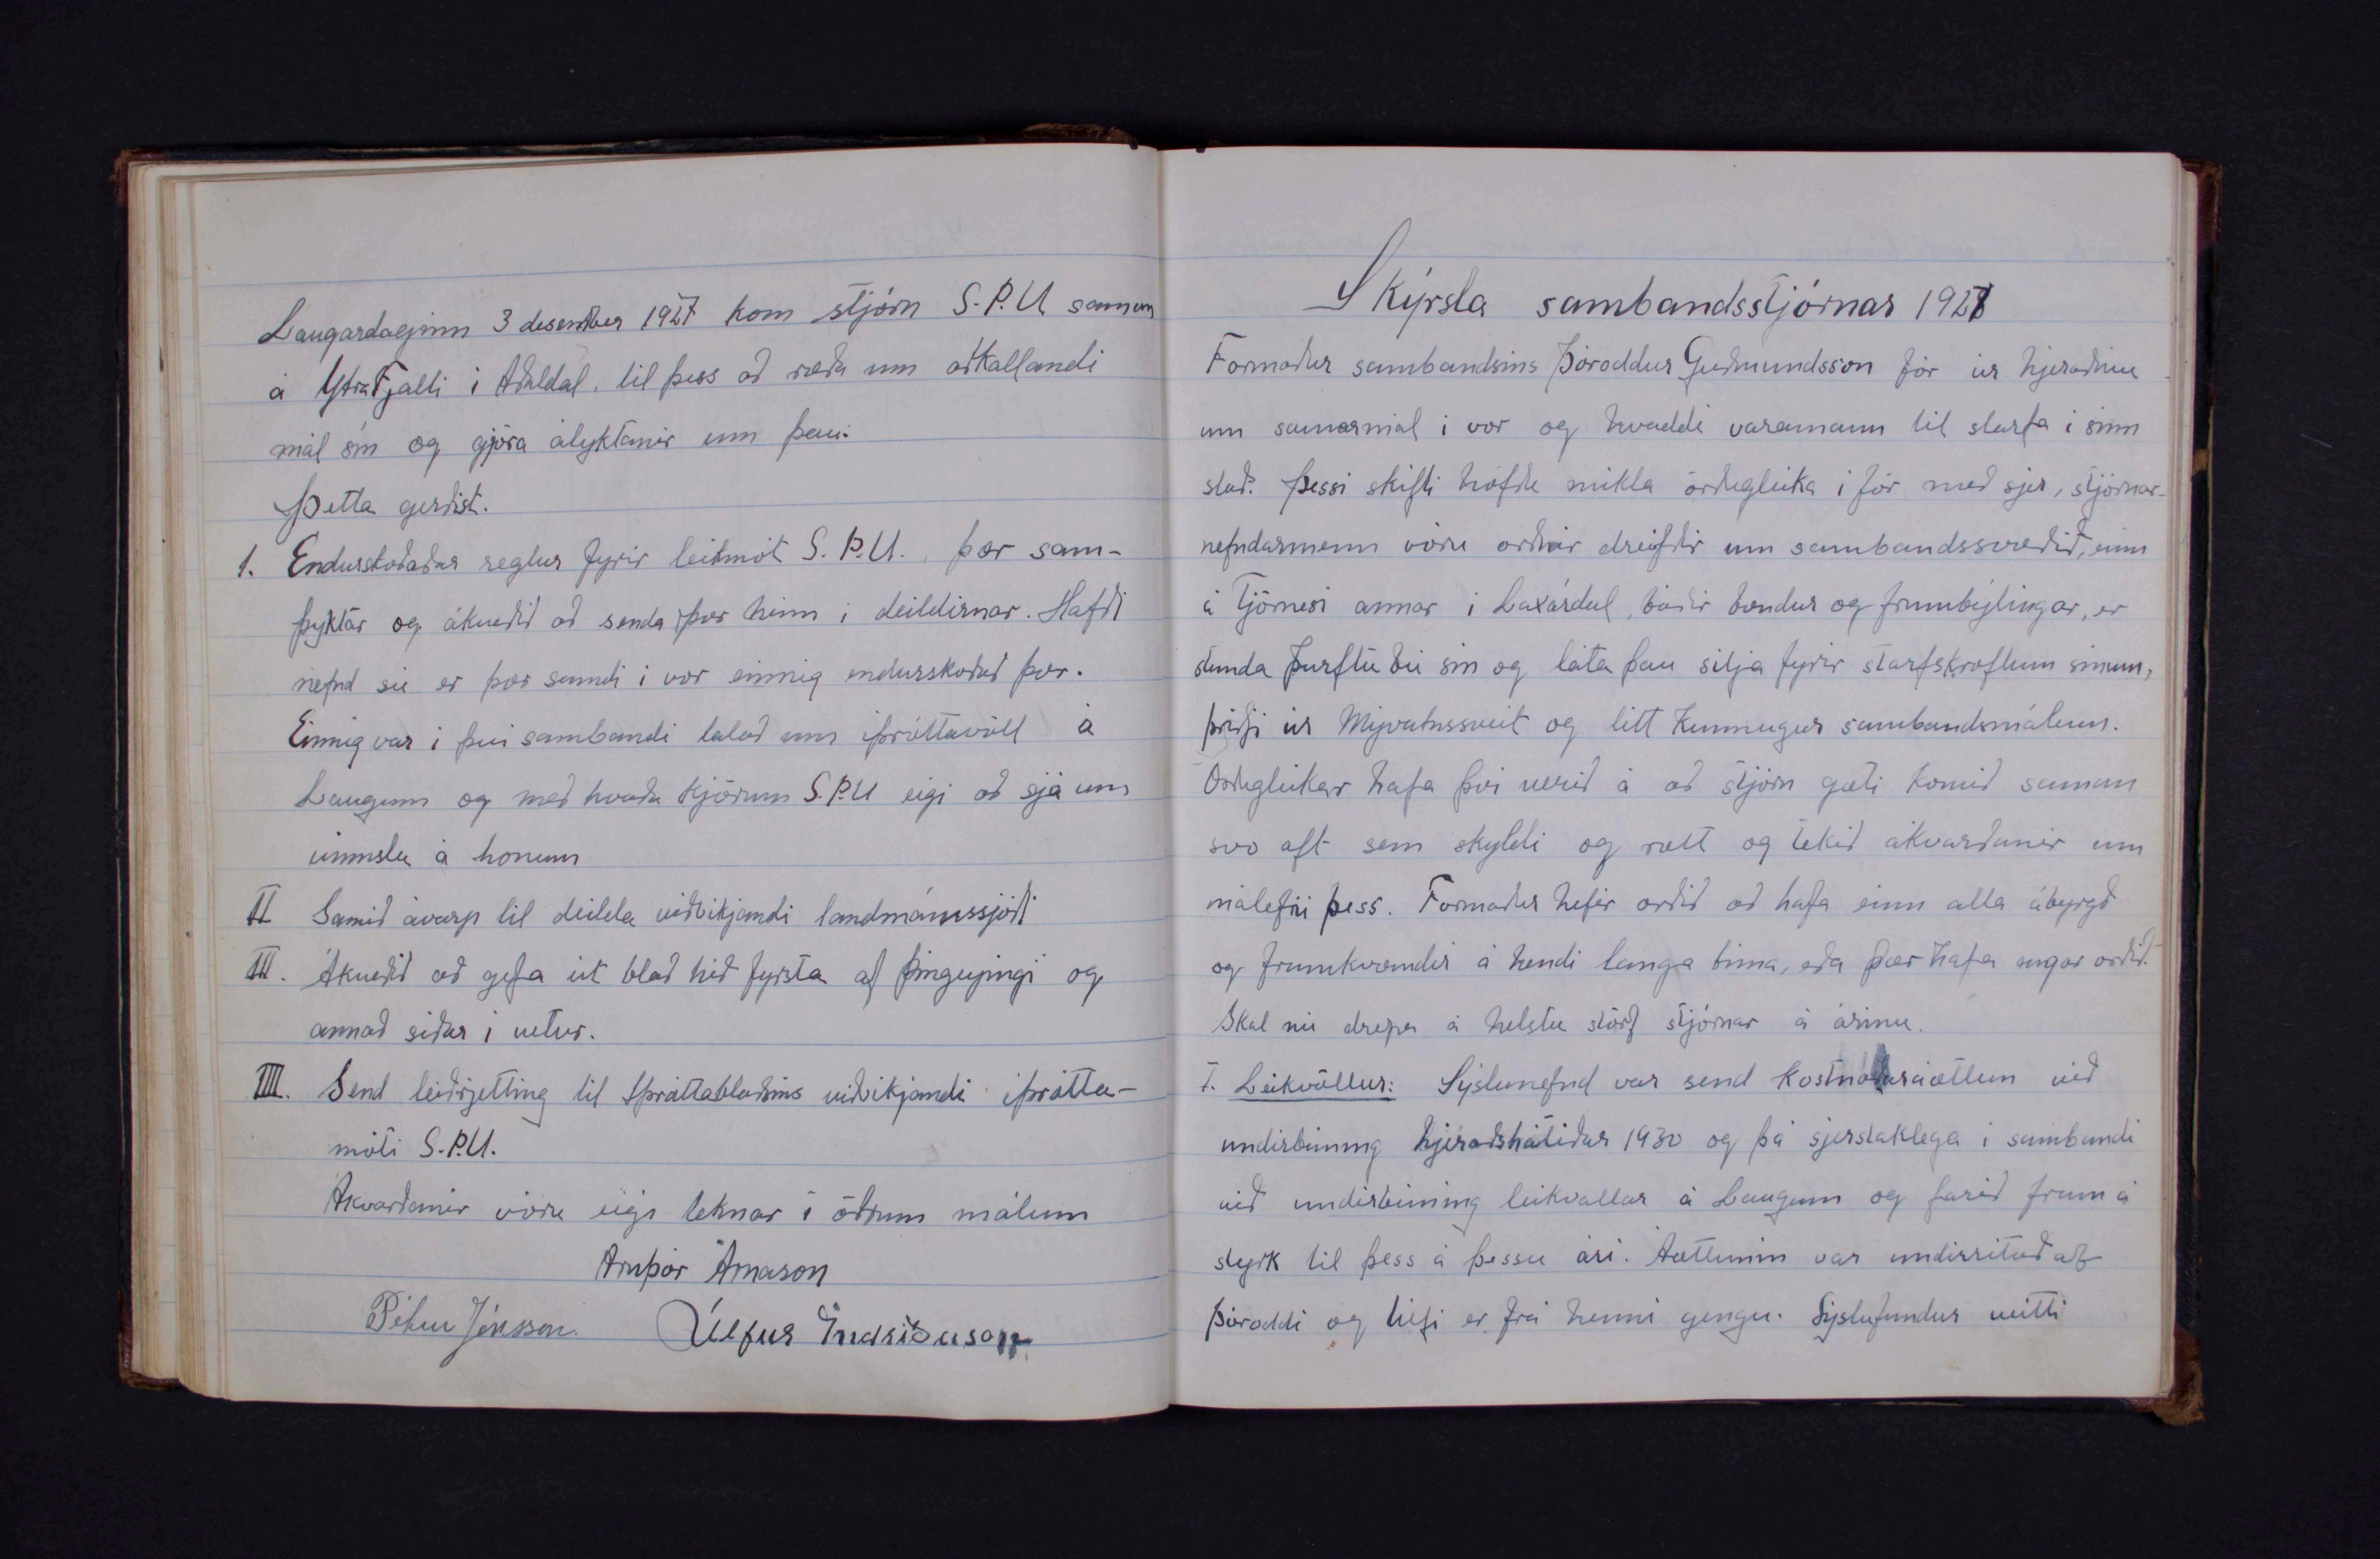 Laugardaginn 3 desember 1927 kom stjórn S.Þ.U saman
á Ytrafjalli í Aðaldal, til þess að ræða um aðkallandi
mál sín og gjöra ályktanir um þau.
Þetta gerðist.
1. Endurskoðaðar reglur fyrir leikmót S.Þ.U., þær sam-
þyktar og ákveðið að senda þær hinn í deildirnar. Hafði
nefnd sú er þær samdi í vor einnig endurskoðað þær.
Einnig var í því sambandi talað um íþróttavöll á
Laugum og með hvaða kjörum S.Þ.U eigi að sjá um
vinnslu á honum
II Samið ávarp til deilda viðvíkjandi landnámssjóði
III. Ákveðið að gefa út blað hið fyrsta af Þingeyingi og
annað síðar í vetur.
IIII. Send leiðrjetting til Íþróttablaðsins viðvíkjandi íþrótta-
móti S.Þ.U.
Ákvarðanir vóru eigi teknar í öðrum málum
Arnþór Árnason
Pétur Jónsson. Úlfur Indriðason
Skýrsla sambandsstjórnar 1927
Formaður sambandsins Þóroddur Guðmundsson fór úr hjeraðinu
um sumarmál í vor og kvaddi varamann til starfa í sinn
stað. Þessi skifti höfðu mikla örðugleika í för með sjer, stjórnar-
nefndarmenn vóru orðnir dreifðir um sambandssvæðið, einn
á Tjörnesi annar í Laxárdal, báðir bændur og frumbýlingar, er
stunda þurftu bú sín og láta þau sitja fyrir starfskröftum sínum,
þriðji úr Mývatnssveit og lítt kunnugur sambandsmálum.
Örðugleikar hafa því verið á að stjórn gæti komið saman
svo oft sem skyldi og rætt og tekið ákvarðanir um
málefni þess. Formaður hefir orðið að hafa einn alla ábyrgð
og framkvæmdir á hendi langa tíma, eða þær hafa engar orðið.
Skal nú drepa á helstu störf stjórnar á árinu.
I. Leikvöllur: Sýslunefnd var send kostnaðaráætlun við
undirbúning hjeraðshátíðar 1930 og þá sjerstaklega í sambandi
við undirbúning leikvallar á Laugum og farið fram á
styrk til þess á þessu ári. Áætlunin var undirrituð af
Þóroddi og Úlfi er frá henni gengu. Sýslufundur veitti